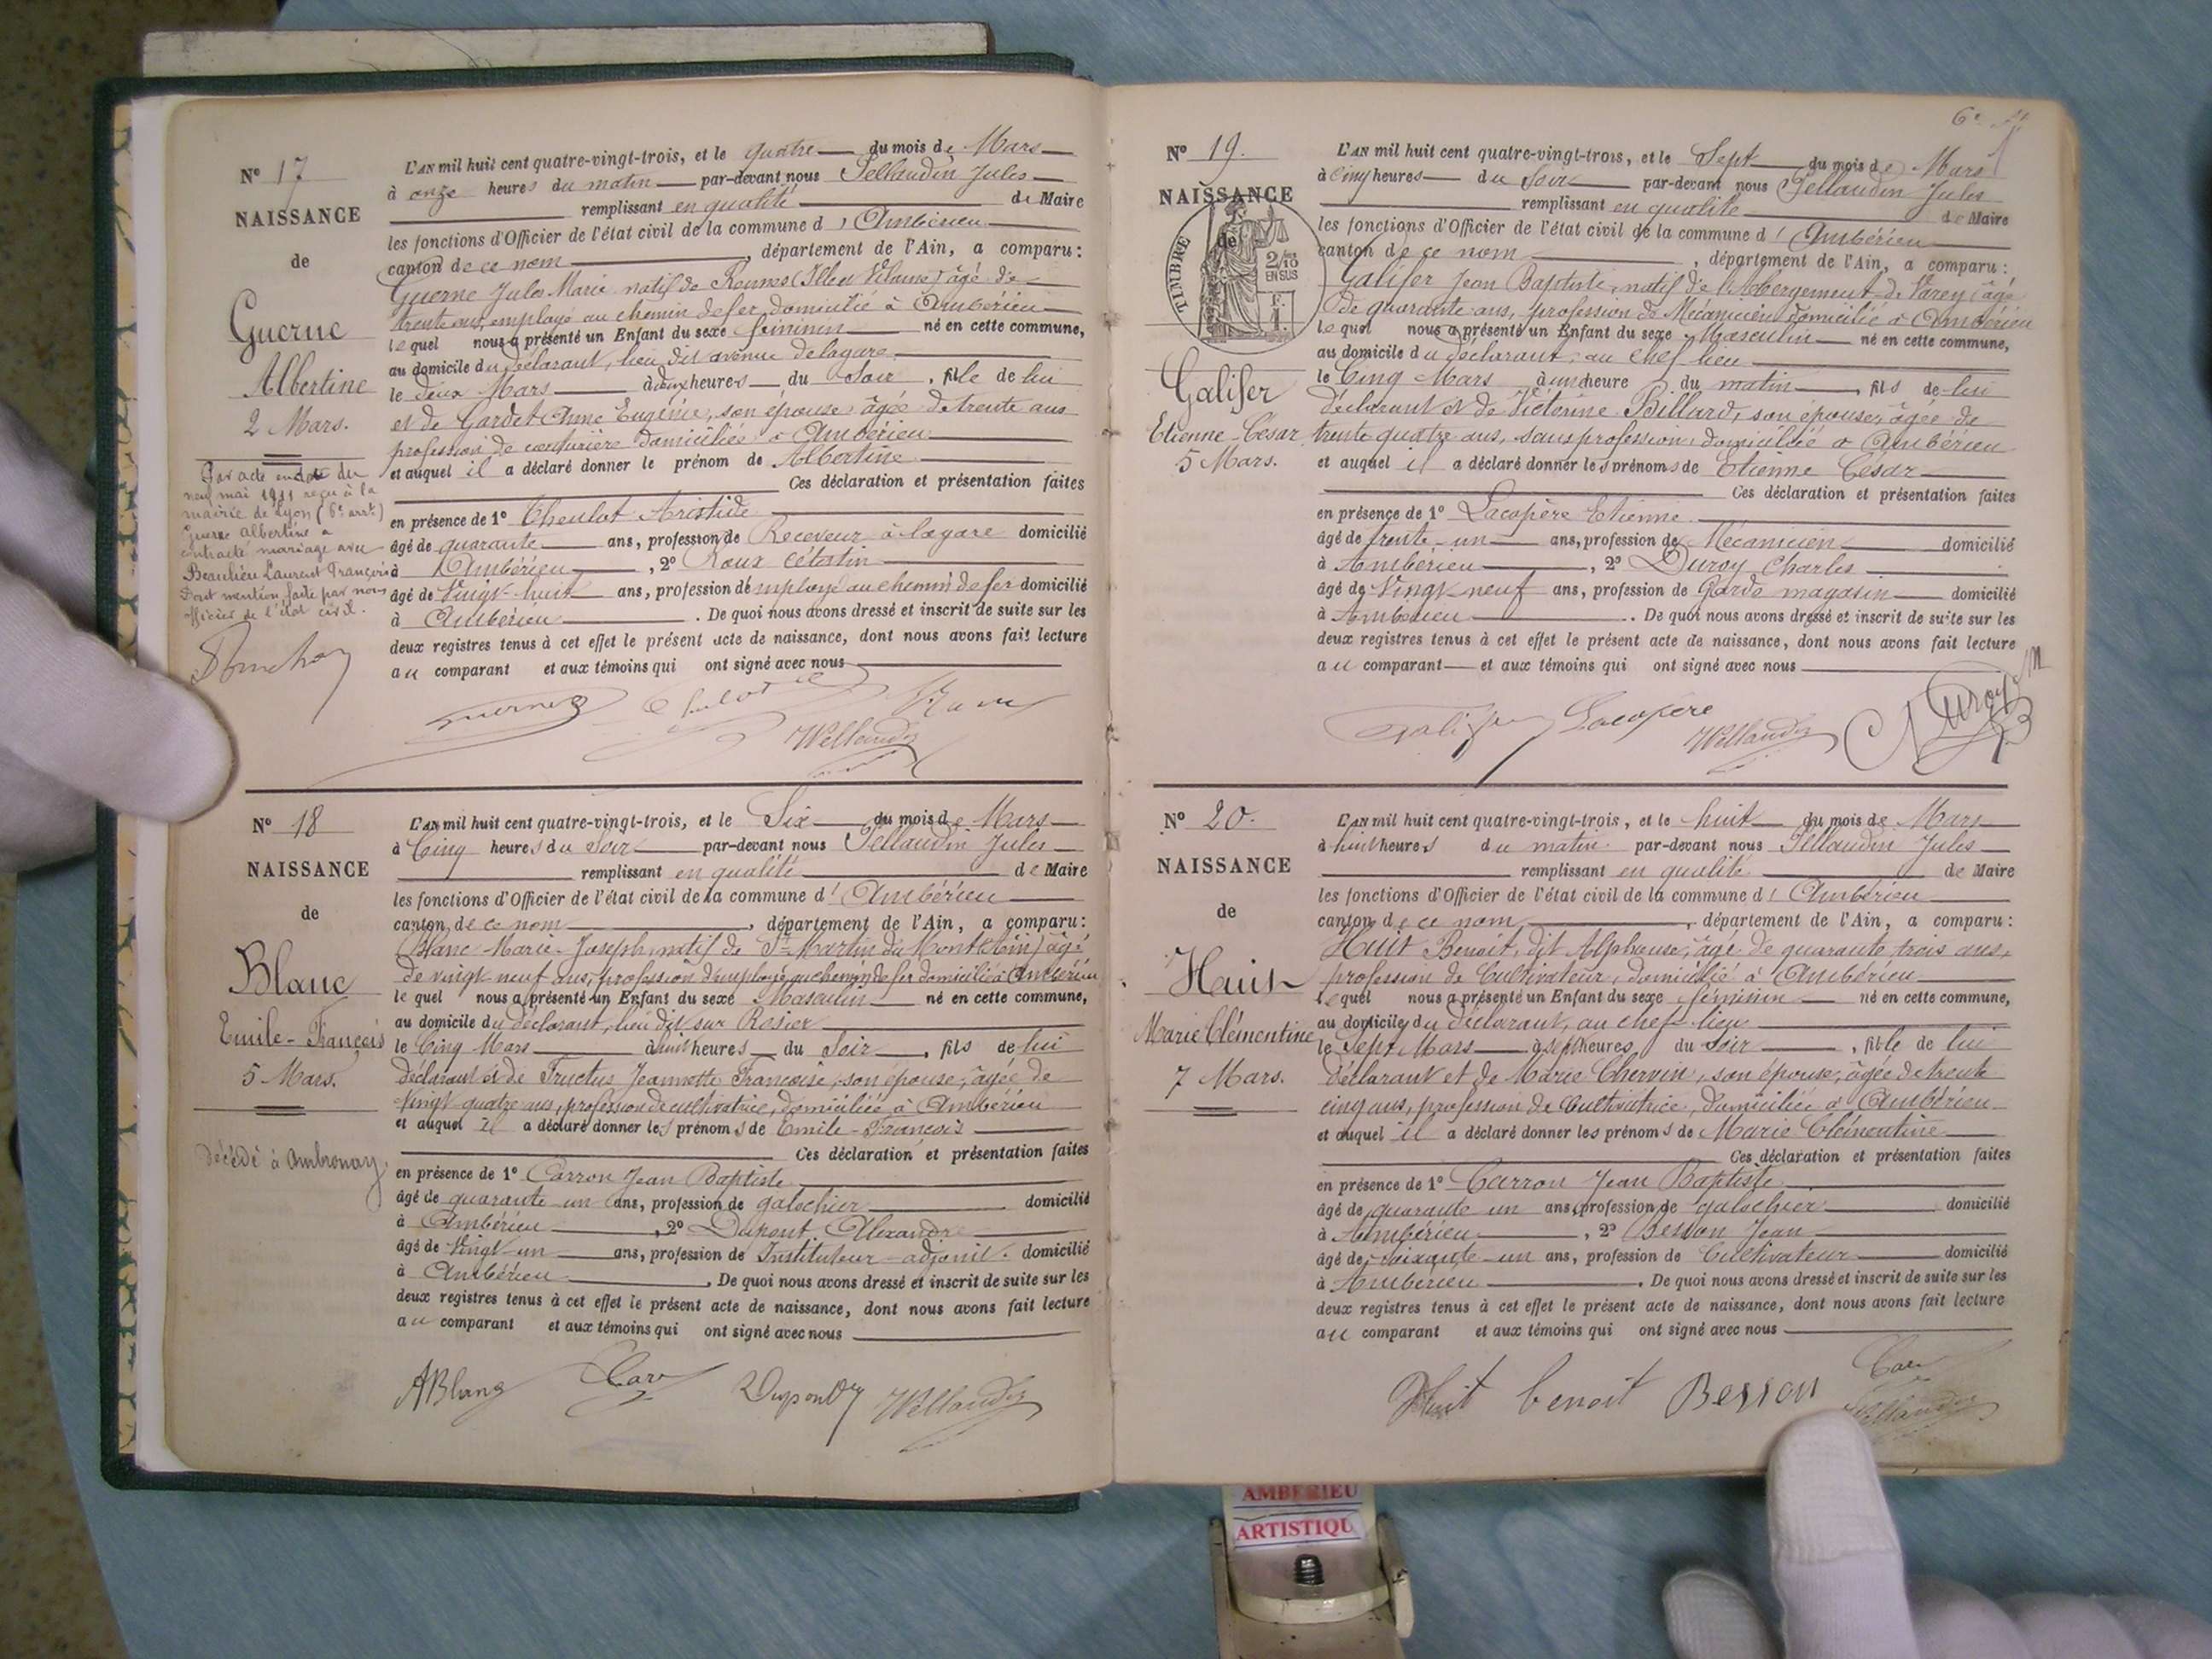 N° 17
NAISSANCE
de
Guerne
Albertine
2 Mars.
Par acte en date du
neuf mai 1911 reçu à la
mairie de Lyon (6e arrt)
Guerne Albertine a
contracté mariage avec
Beaulieu Laurent François
Dont mention faite par nous
officier de l'état civil.
L'AN mil huit cent quatre-vingt-trois, et le quatre du mois de Mars
à onze heures du matin par-devant nous Tellaudin Jules
remplissant en qualité de Maire
les fonctions d'Officier de l'état civil de la commune d'Ambérieu
canton de ce nom, département de l'Ain, a comparu:
Guerne Jules Marie natif de Rennes (Ille et Vilaine) âgé de
trente ans, employé au chemin de fer domicilié à Ambérieu
lequel nous a présenté un Enfant du sexe féminin né en cette commune,
au domicile du déclarant, lieu dit avenue de la gare
le deux Mars à deux heures du soir, fille de lui
et de Gardet Anne Eugénie, son épouse, âgée de trente ans
profession de couturière domiciliée à Ambérieu
et auquel il a déclaré donner le prénom de Albertine
Ces déclaration et présentation faites
en présence de 1° Cheulot Aristide
âgé de quarante ans, profession de Receveur à la gare domicilié
à Ambérieu, 2° Roux Célestin
âgé de Vingt-huit ans, profession d'employé au chemin de fer domicilié
à Ambérieu. De quoi nous avons dressé et inscrit de suite sur les
deux registres tenus à cet effet le présent acte de naissance, dont nous avons fait lecture
au comparant et aux témoins qui ont signé avec nous
N° 18
NAISSANCE
de
Blanc
Emile-François
5 Mars.
Décédé à Ambronay.
L'AN mil huit cent quatre-vingt-trois, et le Six du mois de Mars
à Cinq heures du Soir par-devant nous Tellaudin Jules
remplissant en qualité de Maire
les fonctions d'Officier de l'état civil de la commune d'Ambérieu
canton de ce nom, département de l'Ain, a comparu:
Blanc Marie-Joseph natif de St Martin du Mont (Ain) âgé
de vingt neuf ans, profession d'employé au chemin de fer domicilié à Ambérieu
lequel nous a présenté un Enfant du sexe Masculin né en cette commune,
au domicile du déclarant, lieu dit sur Rosier
le Cinq Mars à huit heures du Soir, fils de lui
déclarant et de Tructus Jeannette Françoise, son épouse, âgée de
vingt quatre ans, profession de cultivatrice, domiciliée à Ambérieu
et auquel il a déclaré donner les prénoms de Emile-François
Ces déclaration et présentation faites
en présence de 1° Carron Jean Baptiste
âgé de quarante un ans, profession de galochier domicilié
à Ambérieu, 2° Dupont Alexandre
âgé de Vingt-un ans, profession de Instituteur-adjoint. domicilié
à Ambérieu. De quoi nous avons dressé et inscrit de suite sur les
deux registres tenus à cet effet le présent acte de naissance, dont nous avons fait lecture
au comparant et aux témoins qui ont signé avec nous
ABlanc Carr Dupont Tellaudin
N° 19.
NAISSANCE
de
TIMBRE
2/10
EN SUS
Galifer
Etienne-César
5 Mars.
L'AN mil huit cent quatre-vingt-trois, et le Sept du mois de Mars
à Cinq heures du Soir par-devant nous Tellaudin Jules
remplissant en qualité de Maire
les fonctions d'Officier de l'état civil de la commune d'Ambérieu
canton de ce nom, département de l'Ain, a comparu:
Galifer Jean Baptiste, natif de l'Abergement-de-Varey, âgé
de quarante ans, profession de Mécanicien domicilié à Ambérieu
lequel nous a présenté un Enfant du sexe Masculin né en cette commune,
au domicile du déclarant, au chef lieu
le Cinq Mars à une heure du matin, fils de lui
déclarant et de Victorine Billard, son épouse, âgée de
trente quatre ans, sans profession, domiciliée à Ambérieu
et auquel il a déclaré donner les prénoms de Etienne César
Ces déclaration et présentation faites
en présence de 1° Lacopère Etienne
âgé de trente-un ans, profession de Mécanicien domicilié
à Ambérieu, 2° Duroy Charles
âgé de Vingt neuf ans, profession de Garde magasin domicilié
à Ambérieu. De quoi nous avons dressé et inscrit de suite sur les
deux registres tenus à cet effet le présent acte de naissance, dont nous avons fait lecture
au comparant et aux témoins qui ont signé avec nous
Galifer Lacopère Tellaudin Duroy
N° 20.
NAISSANCE
de
Huit
Marie Clémentine
7 Mars.
L'AN mil huit cent quatre-vingt-trois, et le huit du mois de Mars
à huit heures du matin par-devant nous Tellaudin Jules
remplissant en qualité de Maire
les fonctions d'Officier de l'état civil de la commune d'Ambérieu
canton de ce nom, département de l'Ain, a comparu:
Huit Benoit, dit Alphonse, âgé de quarante trois ans,
profession de Cultivateur, domicilié à Ambérieu
lequel nous a présenté un Enfant du sexe féminin né en cette commune,
au domicile du déclarant, au chef-lieu
le Sept Mars à sept heures du soir, fille de lui
déclarant et de Marie Chervin, son épouse, âgée de trente
cinq ans, profession de Cultivatrice, domiciliée à Ambérieu
et auquel il a déclaré donner les prénoms de Marie Clémentine
Ces déclaration et présentation faites
en présence de 1° Carron Jean Baptiste
âgé de quarante un ans, profession de galochier domicilié
à Ambérieu, 2° Besson Jean
âgé de soixante-un ans, profession de Cultivateur domicilié
à Ambérieu. De quoi nous avons dressé et inscrit de suite sur les
deux registres tenus à cet effet le présent acte de naissance, dont nous avons fait lecture
au comparant et aux témoins qui ont signé avec nous
Huit benoit Besson Carr
Tellaudin
AMBERIEU
ARTISTIQU